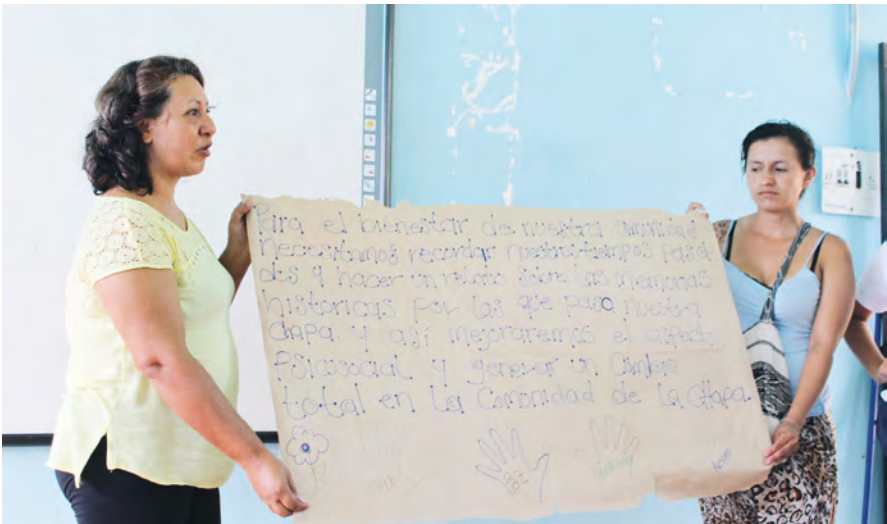 Para el bienestar de nuestra comunidad
necesitamos recordar nuestros tiempos pasa
dos y hacer un relato sobre las memorias
historicas por las que paso nuestra
chapa. y así mejoraremos el aspect.
Psicosocial y generar un Cambio
total en la Comunidad de La Chapa.
PAZ